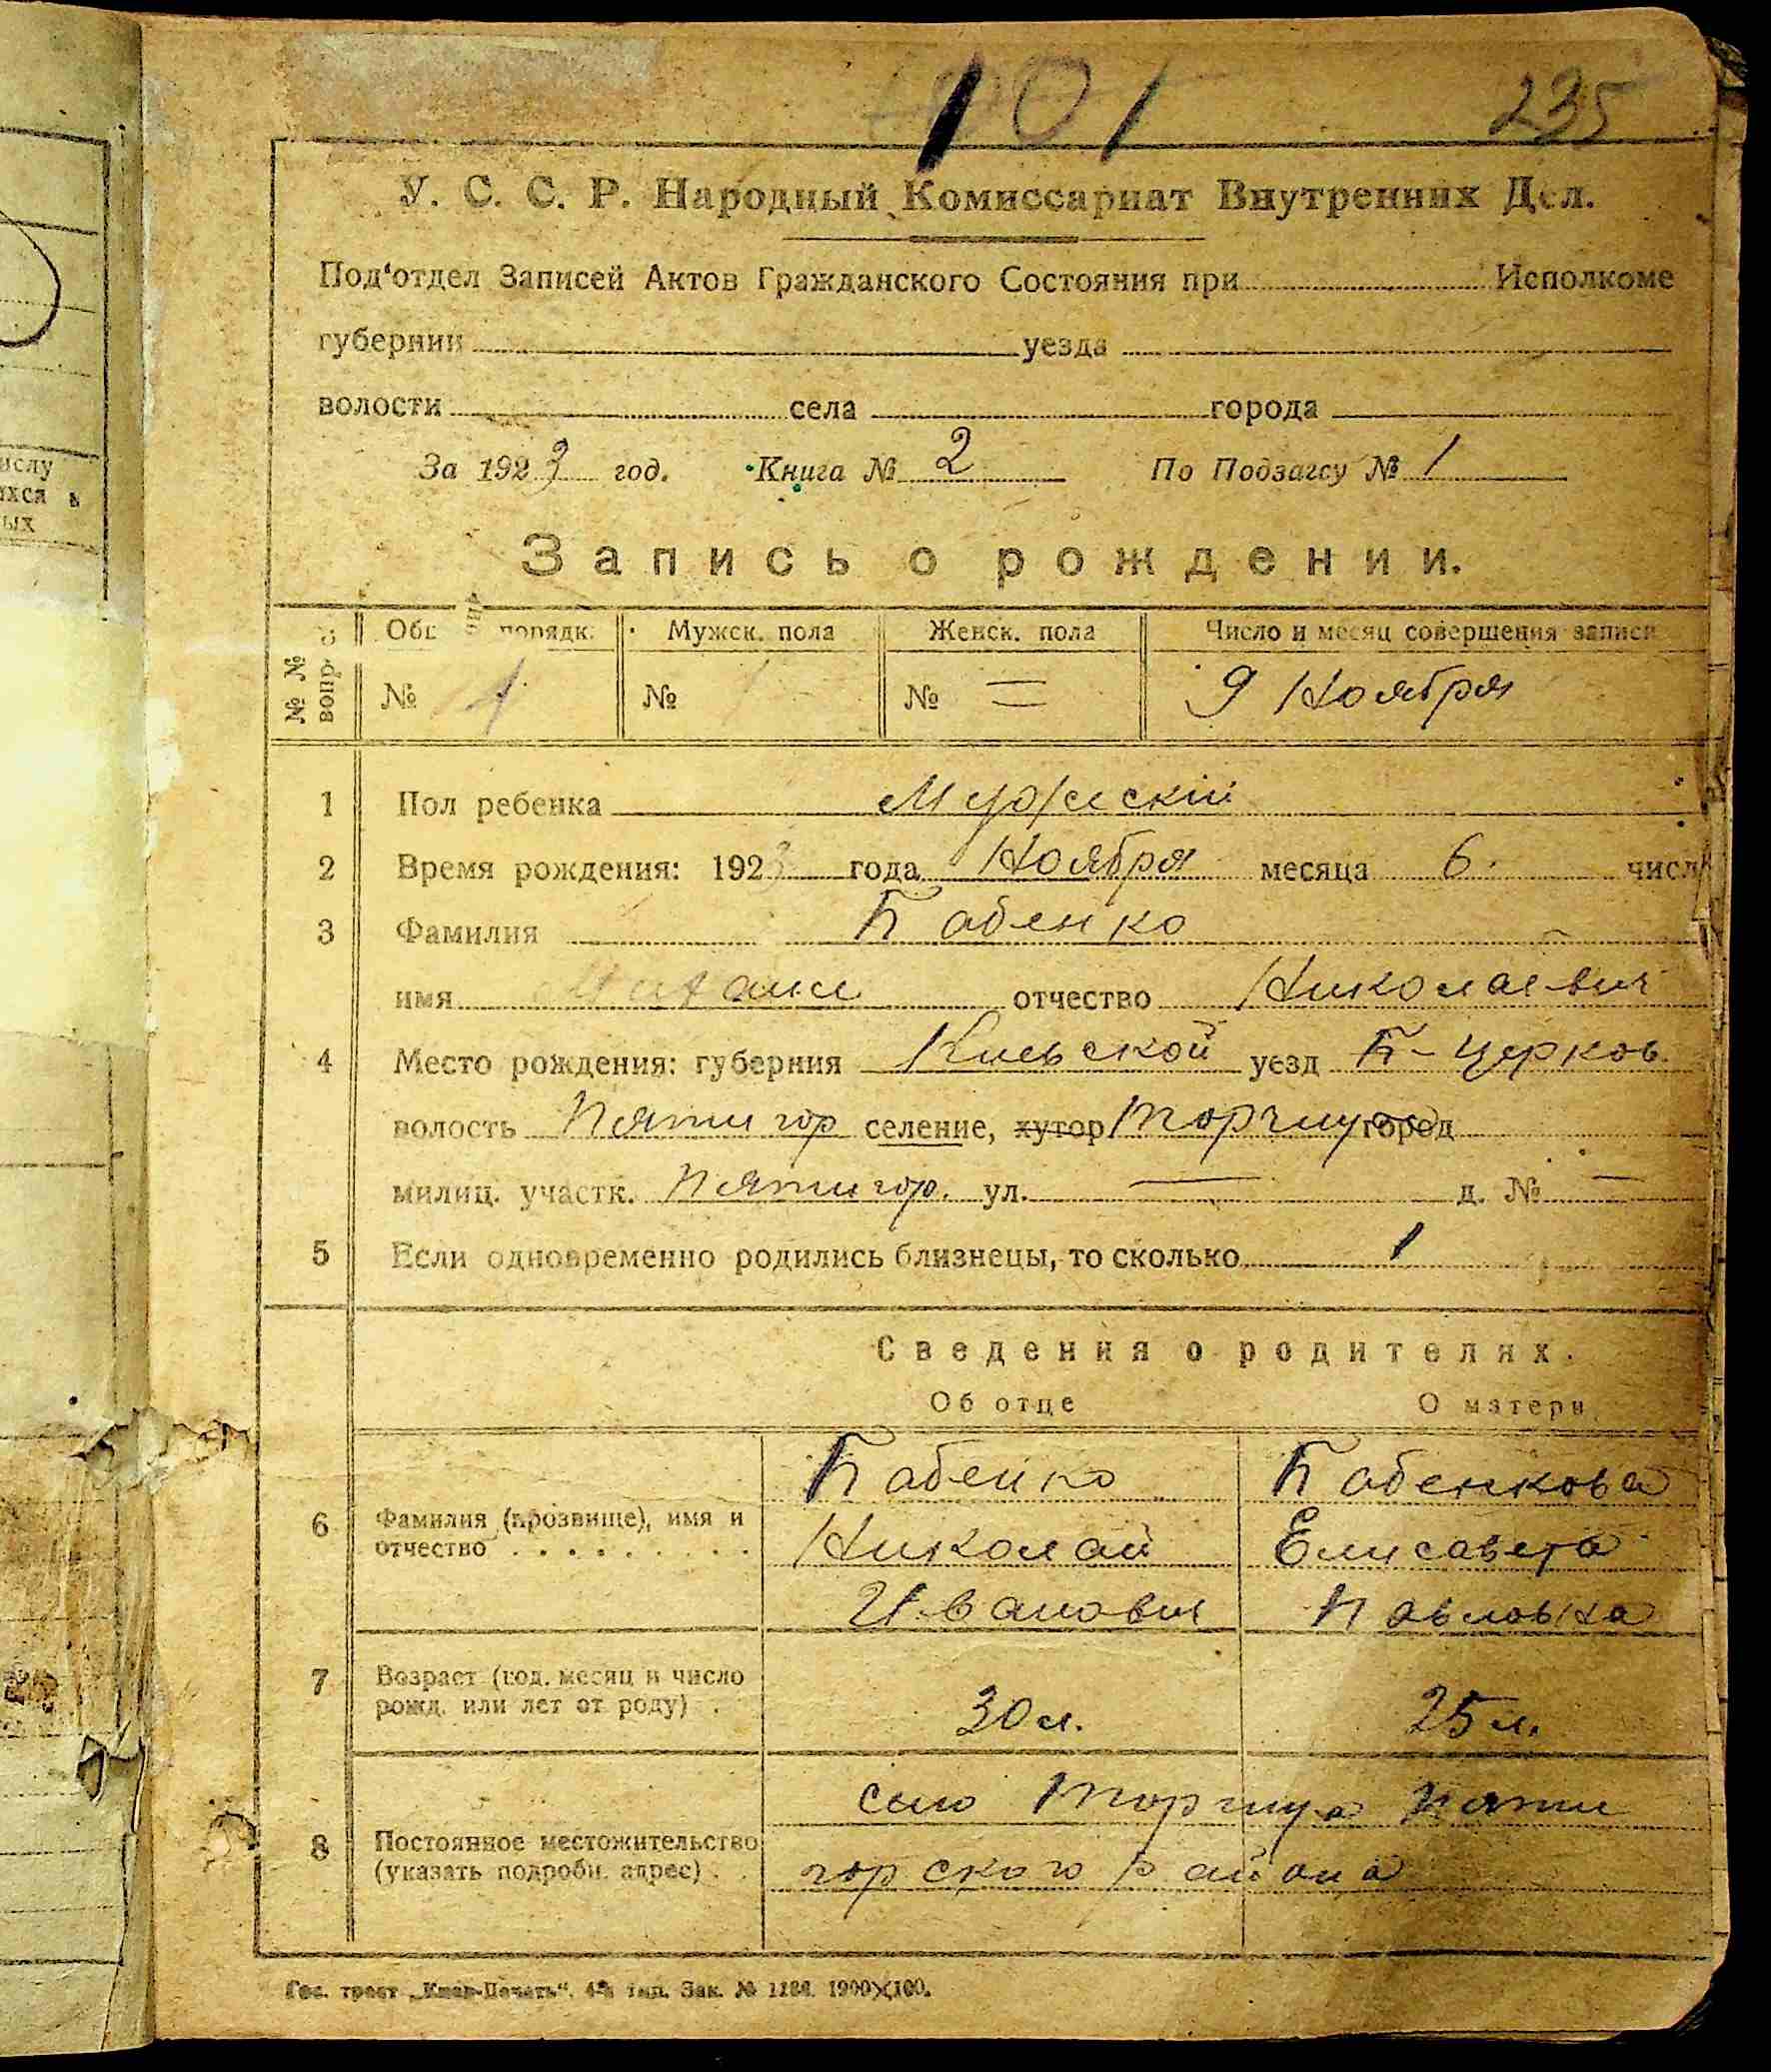 101 235
У. С. С. Р. Народный Комиссариат Внутренних Дел.
Под‘отдел Записей Актов Гражданского Состояния при Исполкоме
губернии уезда
волости села города
За 1923 год. Книга № 2 По Подзагсу № 1
Запись о рождении.
№ № вопр. Общ. порядк. Мужск. пола Женск. пола Число и месяц совершения записи
№ 1 № № = 9 Ноября
1 Пол ребенка Мужескій
2 Время рождения: 1923 года Ноября месяца 6. числ
3 Фамилия Бабенко
имя отчество Николаевич
4 Место рождения: губерния Киевской уезд Б-Церков.
волость Пятигор селение, хутор Торчица город
милиц. участк. Пятигор. ул. — д. № —
5 Если одновременно родились близнецы, то сколько 1
Сведения о родителях.
Об отце О матери
Бабенко Бабенкова
6 Фамилия (прозвище), имя и
отчество Николай Елисавета
Иванович Павловна
7 Возраст (год, месяц и число
рожд. или лет от роду) 30 л. 25 л.
село Торчица Пяти
8 Постоянное местожительство
(указать подробн. адрес) горского района
Гос. трест „Киев-Печать“. 4-я тип. Зак. № 1900×100.
ислу
ихся в
ых